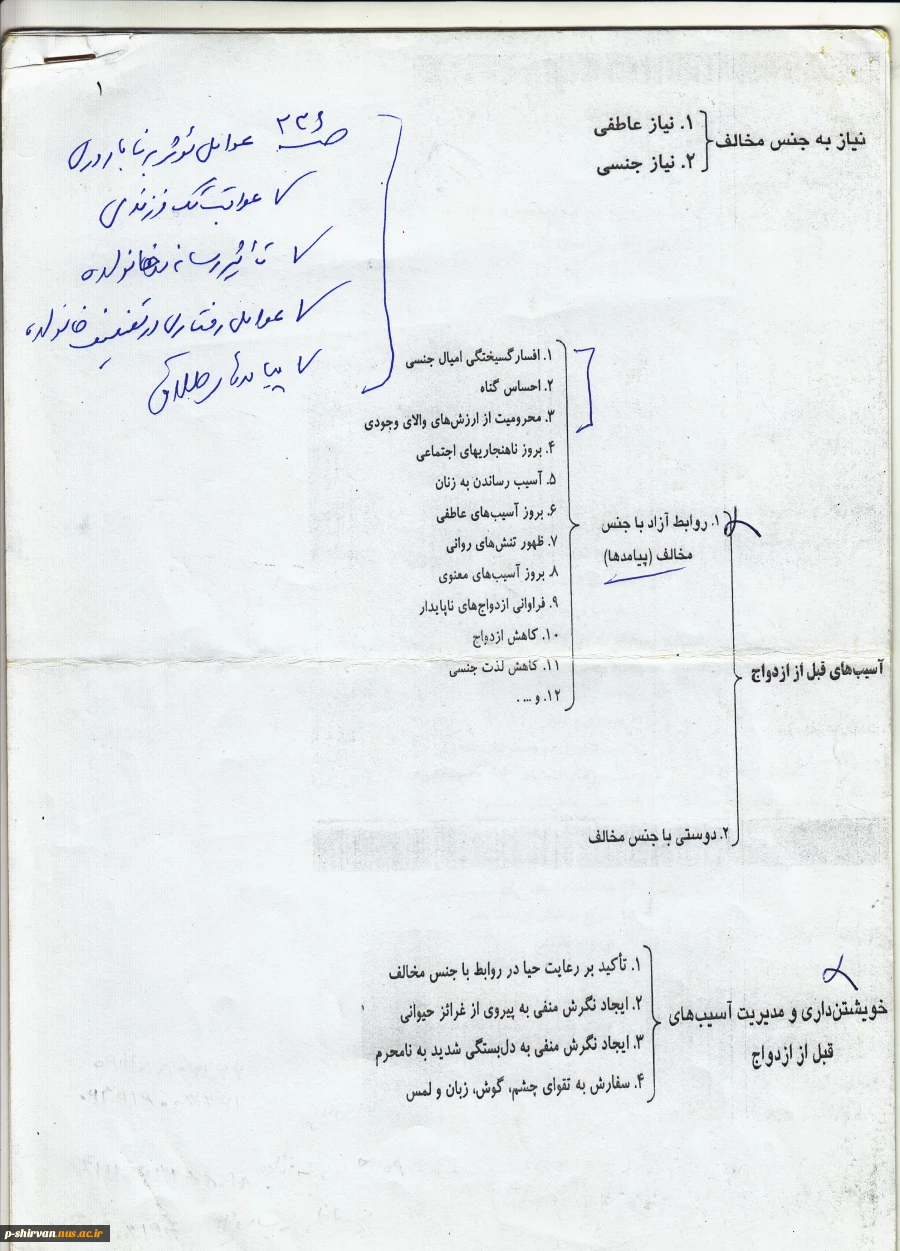 ۱
نیاز به جنس مخالف
۱. نیاز عاطفی
۲. نیاز جنسی
صـ ۲۳۶ عوامل مؤثر بر ناباروری
✓ عواقب تک فرزندی
✓ تأثیر رسانه خانواده
✓ عوامل رفتاری در تضعیف خانواده
✓ پیامدهای طلاق
آسیب‌های قبل از ازدواج
۱. روابط آزاد با جنس
مخالف (پیامدها)
۱. افسارگسیختگی امیال جنسی
۲. احساس گناه
۳. محرومیت از ارزش‌های والای وجودی
۴. بروز ناهنجاریهای اجتماعی
۵. آسیب رساندن به زنان
۶. بروز آسیب‌های عاطفی
۷. ظهور تنش‌های روانی
۸. بروز آسیب‌های معنوی
۹. فراوانی ازدواج‌های ناپایدار
۱۰. کاهش ازدواج
۱۱. کاهش لذت جنسی
۱۲. و ... .
۲. دوستی با جنس مخالف
خویشتن‌داری و مدیریت آسیب‌های
قبل از ازدواج
۱. تأکید بر رعایت حیا در روابط با جنس مخالف
۲. ایجاد نگرش منفی به پیروی از غرائز حیوانی
۳. ایجاد نگرش منفی به دل‌بستگی شدید به نامحرم
۴. سفارش به تقوای چشم، گوش، زبان و لمس
p-shirvan.nus.ac.ir